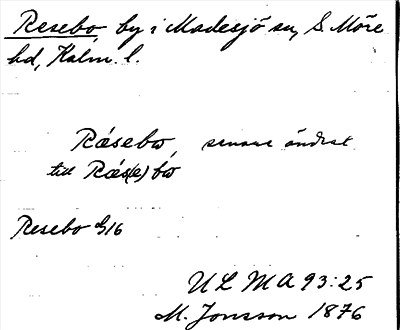 Resebo, by i Madesjö sn, S. Möre
hd, Kalm. l.
Räsebo, senare ändrat
till Räs(e)bo
Resebo G16
ULMA 93:25
M. Jonsson 1876